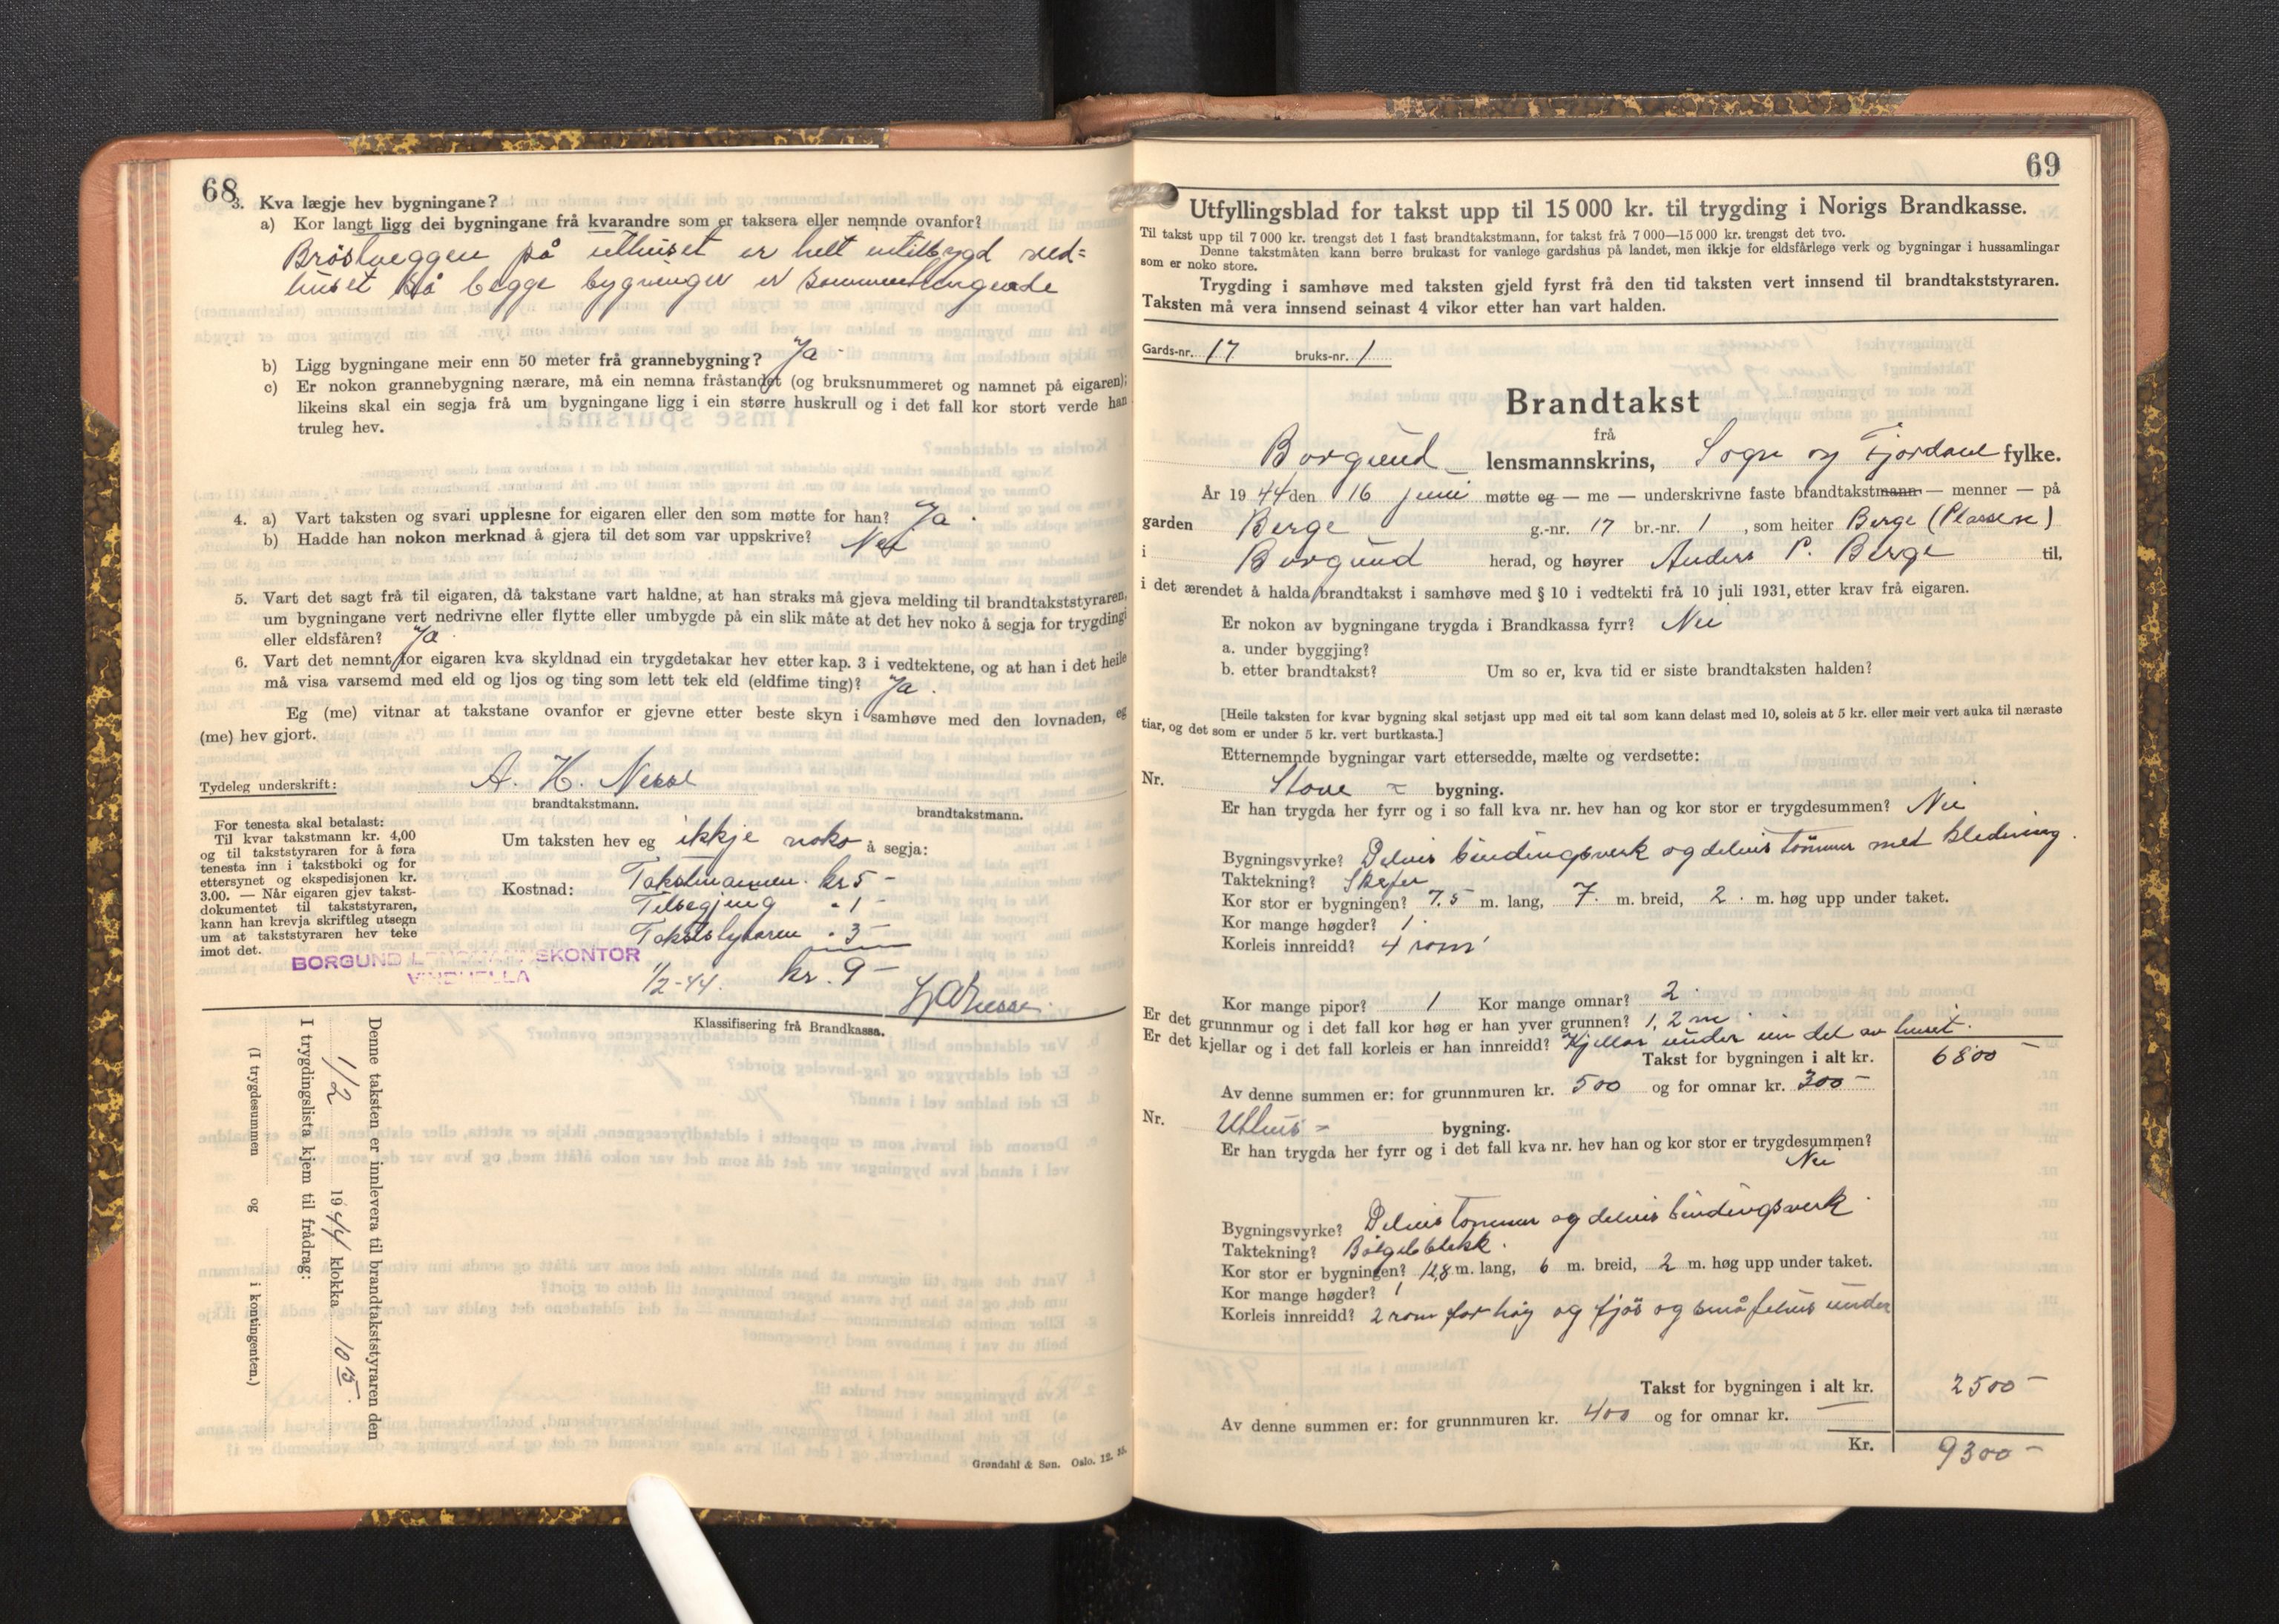 68
3. Kva lægje hev bygningane?
a) Kor langt ligg dei bygningane frå kvarandre som er taksera eller nemnde ovanfor?
Bröstveggen på uthuset er helt intilbygd ved=
huset så begge bygninger er sammenhengende
b) Ligg bygningane meir enn 50 meter frå grannebygning? Ja
c) Er nokon grannebygning nærare, må ein nemna fråstandet (og bruksnummeret og namnet på eigaren);
likeins skal ein segja frå um bygningane ligg i ein større huskrull og i det fall kor stort verde han
truleg hev.
4. a) Vart taksten og svari upplesne for eigaren eller den som møtte for han? Ja
b) Hadde han nokon merknad å gjera til det som var uppskrive? Nei
5. Vart det sagt frå til eigaren, då takstane vart haldne, at han straks må gjeva melding til brandtakststyraren,
um bygningane vert nedrivne eller flytte eller umbygde på ein slik måte at det hev noko å segja for trygdingi
eller eldsfåren? Ja
6. Vart det nemnt for eigaren kva skyldnad ein trygdetakar hev etter kap. 3 i vedtektene, og at han i det heile
må visa varsemd med eld og ljos og ting som lett tek eld (eldfime ting)? Ja.
Eg (me) vitnar at takstane ovanfor er gjevne etter beste skyn i samhøve med den lovnaden, eg
(me) hev gjort.
Tydeleg underskrift: A. H. Nesse
brandtakstmann. brandtakstmann.
For tenesta skal betalast:
Til kvar takstmann kr. 4,00
og til takststyraren for å føra
tenesta inn i takstboki og for
ettersynet og ekspedisjonen kr.
3.00. — Når eigaren gjev takst-
dokumentet til takststyraren,
kann han krevja skriftleg utsegn
um at takststyraren hev teke
imot det.
Um taksten hev eg ikkje noko å segja:
Kostnad: Takstmannen kr 5 -
Tilsegjing " 1 -
Takststyraren " 3 -
kr. 9 -
BORGUND LENSMANNSKONTOR
VINDHELLA
1/2-44.
Klassifisering frå Brandkassa.
Denne taksten er innlevera til brandtakststyraren den
1/2 1944 klokka 10 15.
I trygdingslista kjem til frådrag:
(I trygdesummen og i kontingenten.)
Grøndahl & Søn. Oslo. 12. 35.
69
Utfyllingsblad for takst upp til 15 000 kr. til trygding i Norigs Brandkasse.
Til takst upp til 7 000 kr. trengst det 1 fast brandtakstmann, for takst frå 7 000—15 000 kr. trengst det tvo.
Denne takstmåten kann berre brukast for vanlege gardshus på landet, men ikkje for eldsfårlege verk og bygningar i hussamlingar
som er noko store.
Trygding i samhøve med taksten gjeld fyrst frå den tid taksten vert innsend til brandtakststyraren.
Taksten må vera innsend seinast 4 vikor etter han vart halden.
Gards-nr. 17 bruks-nr. 1
Brandtakst
frå
Borgund lensmannskrins, Sogn og Fjordane fylke.
År 1944 den 16 juni møtte eg — me — underskrivne faste brandtakstmann — menner — på
garden Berge g.-nr. 17 br.-nr. 1, som heiter Berge (Plassene)
i Borgund herad, og høyrer Anders P. Berge til,
i det ærendet å halda brandtakst i samhøve med § 10 i vedtekti frå 10 juli 1931, etter krav frå eigaren.
Er nokon av bygningane trygda i Brandkassa fyrr? Nei
a. under byggjing?
b. etter brandtakst? Um so er, kva tid er siste brandtaksten halden?
[Heile taksten for kvar bygning skal setjast upp med eit tal som kann delast med 10, soleis at 5 kr. eller meir vert auka til næraste
tiar, og det som er under 5 kr. vert burtkasta.]
Etternemnde bygningar vart ettersedde, mælte og verdsette:
Nr. Stove = bygning.
Er han trygda her fyrr og i so fall kva nr. hev han og kor stor er trygdesummen? Nei
Bygningsvyrke? Delvis bindingsverk og delvis tömmer med kledning.
Taktekning? Skifer
Kor stor er bygningen? 7.5 m. lang, 7. m. breid, 2. m. høg upp under taket.
Kor mange høgder? 1.
Korleis innreidd? 4 rom
Kor mange pipor? 1 Kor mange omnar? 2.
Er det grunnmur og i det fall kor høg er han yver grunnen? 1,2 m.
Er det kjellar og i det fall korleis er han innreidd? Kjellar under ein del av huset.
Takst for bygningen i alt kr. 6800 -
Av denne summen er: for grunnmuren kr. 500 og for omnar kr. 300 -
Nr. Uthus = bygning.
Er han trygda her fyrr og i det fall kva nr. hev han og kor stor er trygdesummen?
Nei
Bygningsvyrke? Delvis tømmer og delvis bindingsverk.
Taktekning? Bölgeblekk.
Kor stor er bygningen? 12,8 m. lang, 6 m. breid, 2 m. høg upp under taket.
Kor mange høgder? 1
Korleis innreidd? 2 rom for höy og fjös og småfehus under
Takst for bygningen i alt kr. 2500 -
Av denne summen er: for grunnmuren kr. 400 og for omnar kr. —
Kr. 9300 -